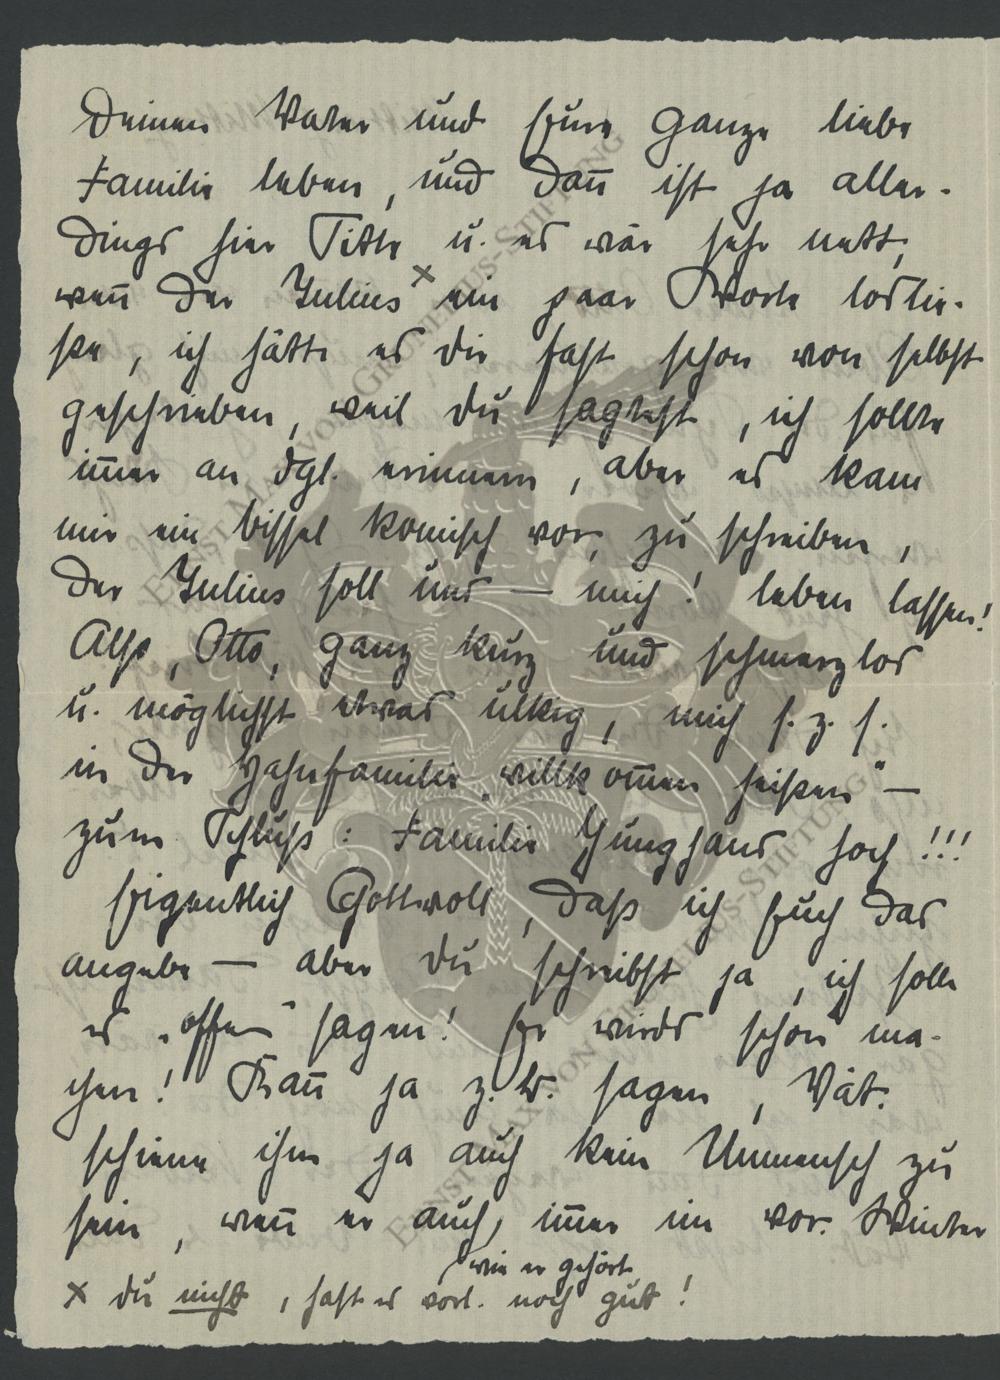 Deinen Vater und Eure ganze liebe
Familie leben, und dan̄ ist ja aller-
dings hier Sitte u. es wär sehr nett,
wen̄ der Julius × ein paar Worte loslie-
ße, ich hätte es dir fast schon von selbst
geschrieben, weil du sagtest, ich sollte
im̄er an dgl. erinnern, aber es kam
mir ein bissel komisch vor, zu schreiben,
der Julius soll uns — mich! leben lassen!
Also, Otto, ganz kurz und schmerzlos
u. möglichst etwas ulkig, mich s. z. s.
in der Hahnfamilie „willkom̄en heißen" —
zum Schluß: Familie Junghans hoch!!!
Eigentlich Gottvoll, daß ich Euch das
angebe — aber du schreibst ja, ich solle
es „offen" sagen! Er wirds schon ma-
chen! Kan̄ ja z. B. sagen, Vat.
schiene ihm ja auch kein Unmensch zu
sein, wen̄ er auch, im̄er im vor. Winter
wie er gehört
× du nicht, hast es vorl. noch gut!
ERNST-MAX-VON-GRUNELIUS-STIFTUNG
ERNST-MAX-VON-GRUNELIUS-STIFTUNG